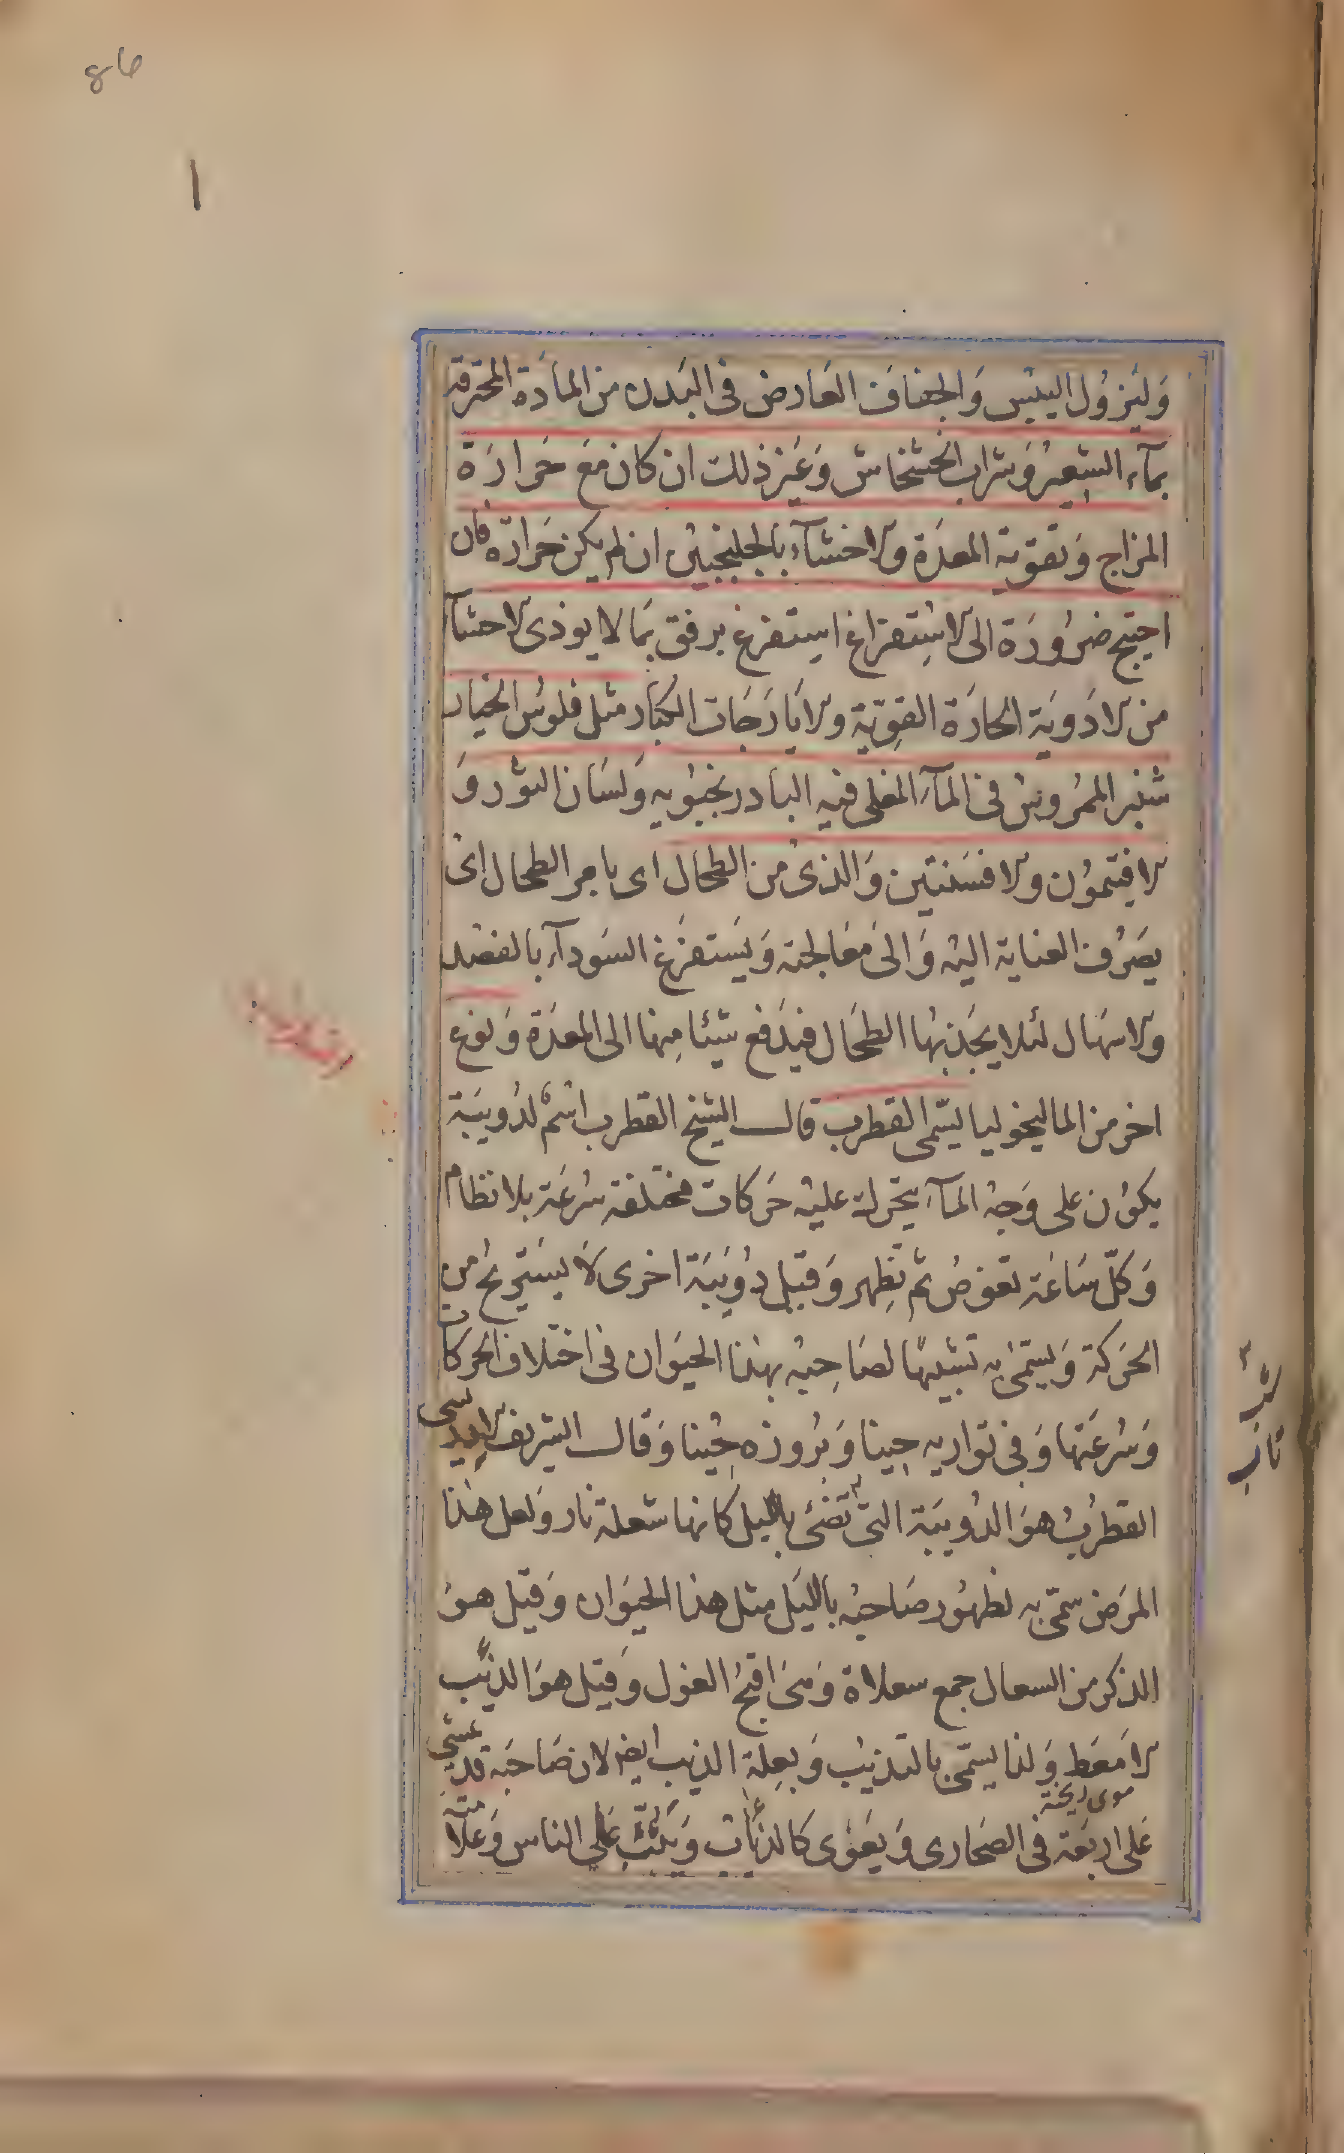 86
١
وَليَزوُل اليبْس وَالجفافَ العَارض فى البَدن من المادّة المحترقة
بمآء الشعيْر وَشراب الخشخاش وَغَيْر ذلك ان كان مَعَ حَرارَة
المزاج وَتقوية المعدَة والاحشآء بالجلنجبيْن ان لم يكن حَرارَة فان
احتيج ضرُورَة الى الاسْتفراغ استفرغ برفق بمَا لا يوذى الاحشآ
من الادَويَة الحارَة القوِيّة والايَارَجَات الكبَار مثل فلوس الخيار
شنبر الممرُوسْ فى المآء المغلى فيه البادرنجبُويه وَلسَان الثور وَ
الافيتموُن والافسَنتين وَالذىْ من الطحال اى بامر الطحال اىْ
يصَرُف العناية اليْه وَالىَ مَعَالجته وَيَستفرَغ السَودآء بالفصْد
والاسْهال لئلا يجَذبهَا الطحَال فيدَفع شيئا مِنها الى المعدَة وَنوع
اخر من الماليخوليا يسّمى القطرب قال الشيخ القطرب اسْمٌ لدُويبَة
يكوُن على وَجْه المآء يتحّرك عليْه حَركات مختلفة سُرعَة بلا نظام
وَكلّ سَاعَة تغوصُ ثم تظِهر وَقيل دُوَيبَة اخرى لَا يسَتريحُ من
الحَركة وَيسَمىْ به تشبيهًا لصَاحِبه بهٰذا الحيَوان فى اختلاف الحَركات
وَسُرعَتها وَفى تواريه حِينا وَبُروزه حِينا وَقال الشريف
القطربُ هوَ الدُويبَة التىّ تضئ بالليل كانها شعلة نار وَلعل هٰذا
المرَض سَمّى به لظهوُر صَاحبه بالليَل مثل هذا الحيَوان وَقيل هوَ
الذكر من السعال جمع سعلاة وَهىَ اقبحُ الغول وَقيل هوَ الذئب
الامَعَط وَلذا يسّمى بالتذئبْ وَبعِلة الذئب ايضا لان صَاحبَه قد يمشى
موى ريخته
عَلى اربعَة فى الصَحَارى وَيعَوٰى كالذئاب وَيَثبّ عَلى الناس وَعَلامته